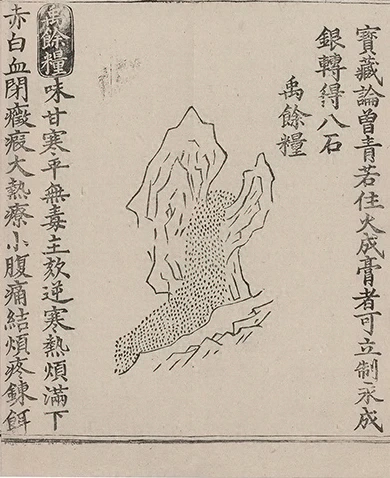 寶藏論曾青若住火成膏者可立制汞成
銀轉得八石
禹餘糧
禹餘糧味甘寒平無毒主欬逆寒熱煩滿下
赤白血閉癥瘕大熱療小腹痛結煩疼鍊餌